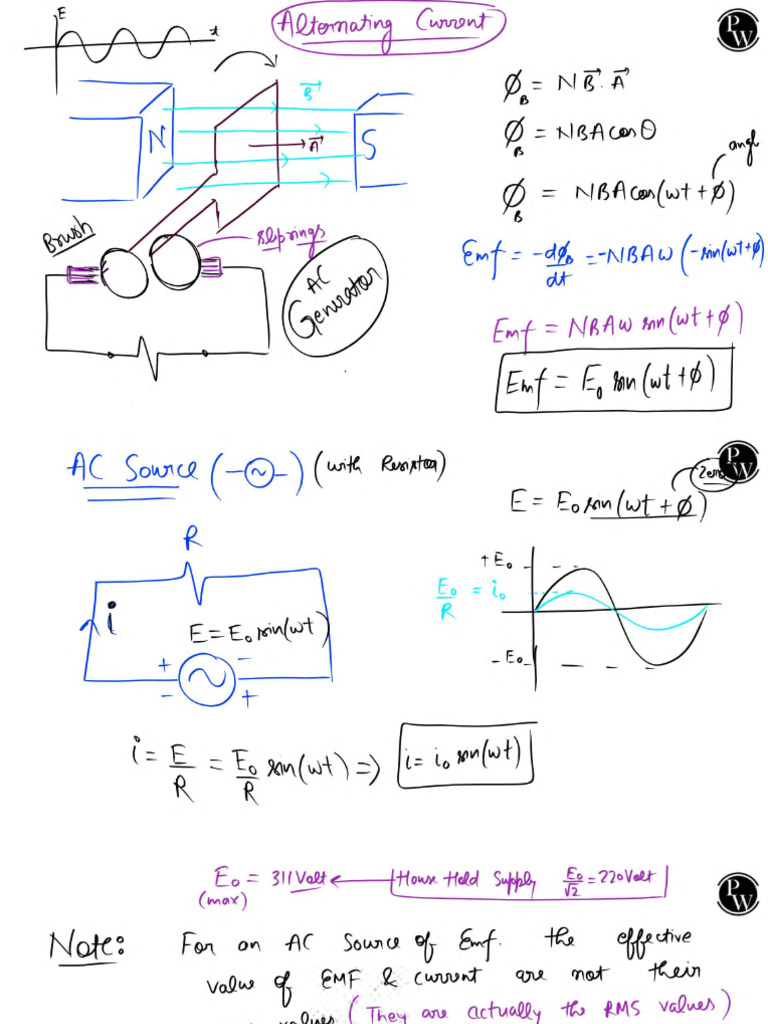 E
t
Alternating Current
PW
B⃗
N
A⃗
S
Brush
Sliprings
AC
Generator
ϕ_B = N B⃗ . A⃗
ϕ_B = NBA cosθ
angl
ϕ_B = NBA cos(wt + ϕ)
Emf = -dϕ_B/dt = -NBAw (-sin(wt+ϕ)
Emf = NBAw sin(wt + ϕ)
Emf = E₀ sin(wt + ϕ)
AC Source (-~-) (with Resistor)
PW
Zero
E = E₀ sin(wt + ϕ)
R
i
E = E₀ sin(wt)
+ -
- +
+E₀
E₀/R = i₀
-E₀
i = E/R = E₀/R sin(wt) => i = i₀ sin(wt)
E₀ = 311 Volt ← House Hold Supply E₀/√2 = 220 Volt
(max)
PW
Note: For an AC Source of Emf. the effective
value of EMF & current are not their
values (They are actually the RMS values)